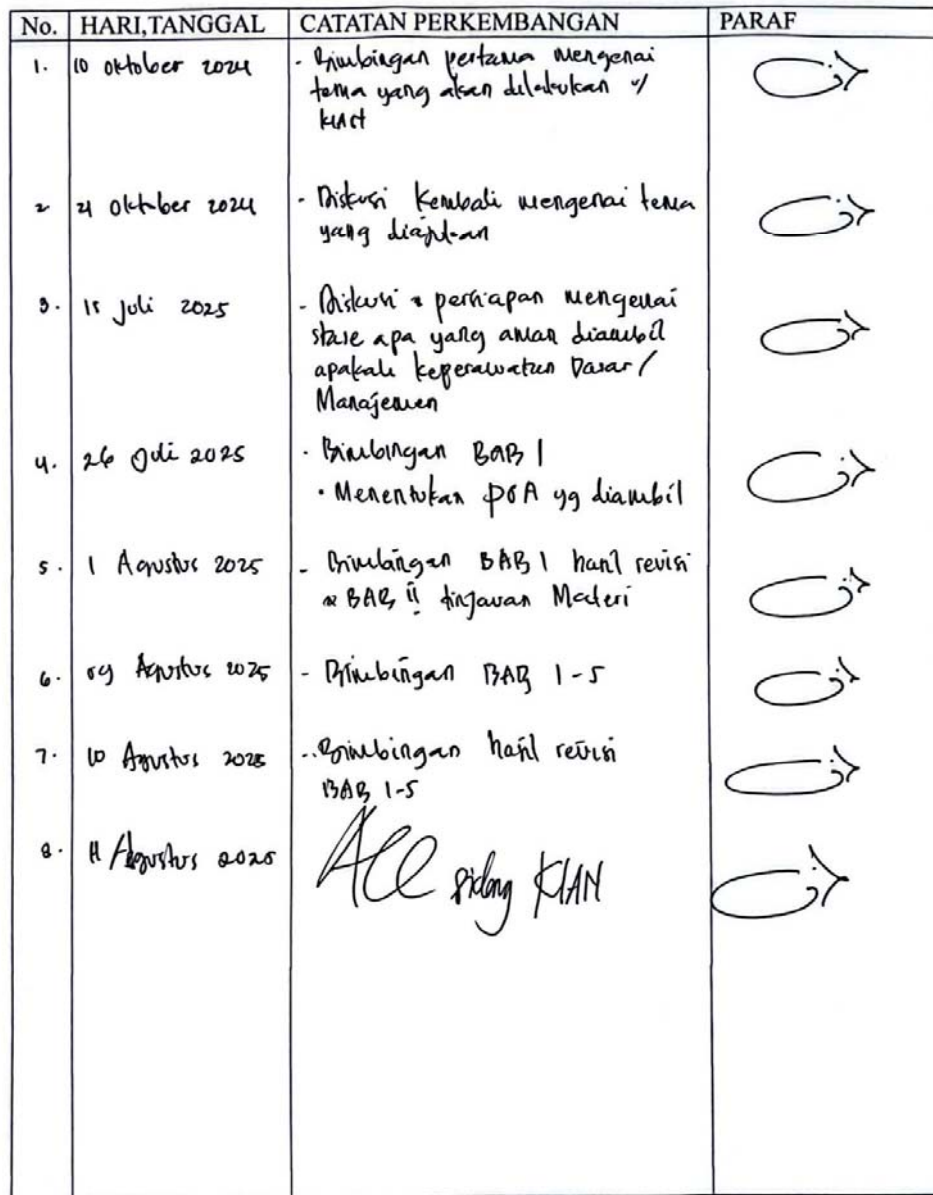 No. HARI,TANGGAL CATATAN PERKEMBANGAN PARAF
1. 10 oktober 2024 - Bimbingan pertama mengenai
tema yang akan dilakukan u/
2. 21 Oktober 2024 - Diskusi Kembali mengenai tema
yang diajukan
3. 15 Juli 2025 - Diskusi & persiapan mengenai
stase apa yang akan diambil
apakah keperawatan Dasar/
Manajemen
4. 26 Juli 2025 - Bimbingan BAB 1
- Menentukan yg diambil
5. 1 Agustus 2025 - Bimbingan BAB 1 hasil revisi
& BAB II tinjauan Materi
6. 09 Agustus 2025 - Bimbingan BAB 1-5
7. 10 Agustus 2025 - Bimbingan hasil revisi
BAB 1-5
8. 11 Agustus 2025 ACC sidang KIAN